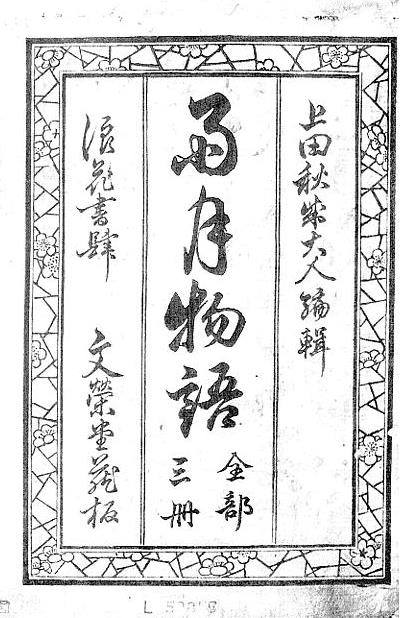 上田秋成大人編輯
雨月物語
全部
三冊
浪花書肆 文榮堂藏板